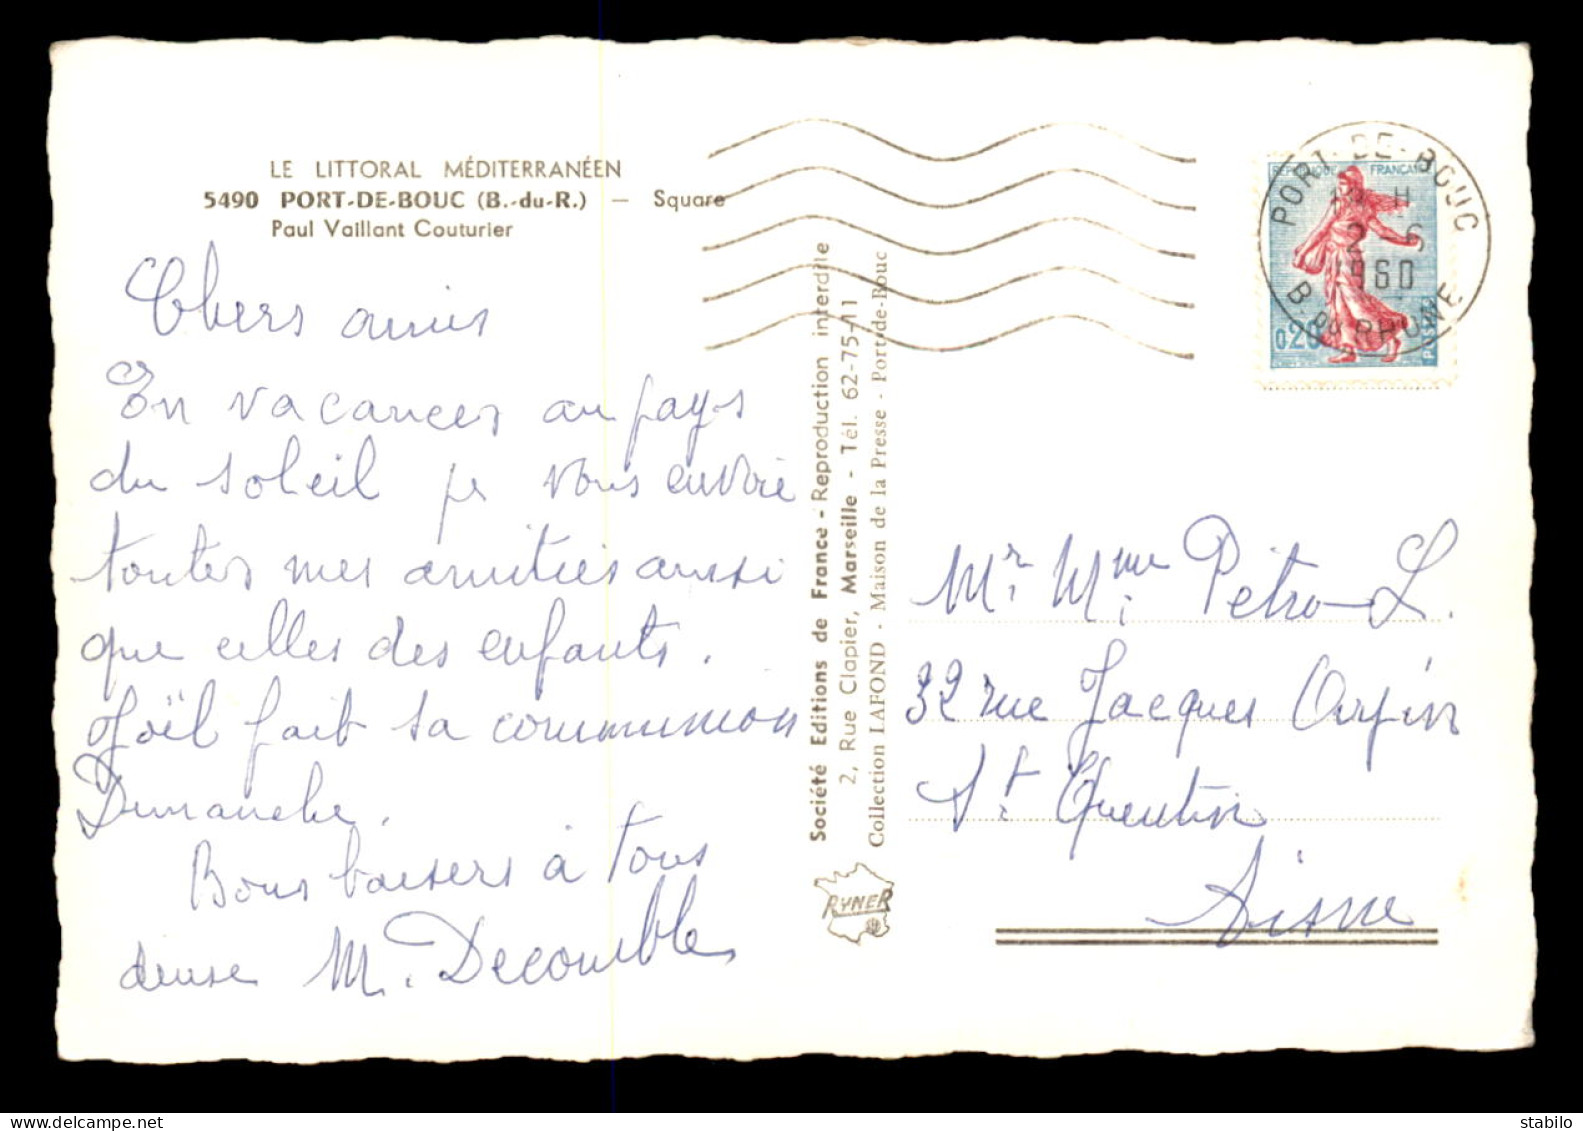 LE LITTORAL MÉDITERRANÉEN
5490 PORT-DE-BOUC (B.-du-R.) — Square
Paul Vaillant Couturier
Chers amis
En vacances au pays
du soleil je vous envoie
toutes mes amitiés aussi
que celles des enfants.
Joël fait sa communion
Dimanche.
Bons baisers à tous
M. Decomble
Société Editions de France - Reproduction interdite
2, Rue Clapier, Marseille - Tél. 62-75-11
Collection LAFOND - Maison de la Presse - Port-de-Bouc
RYNER
REPUBLIQUE FRANÇAISE
0,20
POSTES
PORT-DE-BOUC
H
2-6
1960
B. DU RHONE
Mr. Mme Pétro-L.
32 rue Jacques Orfin
St. Quentin
Aisne
stabilo